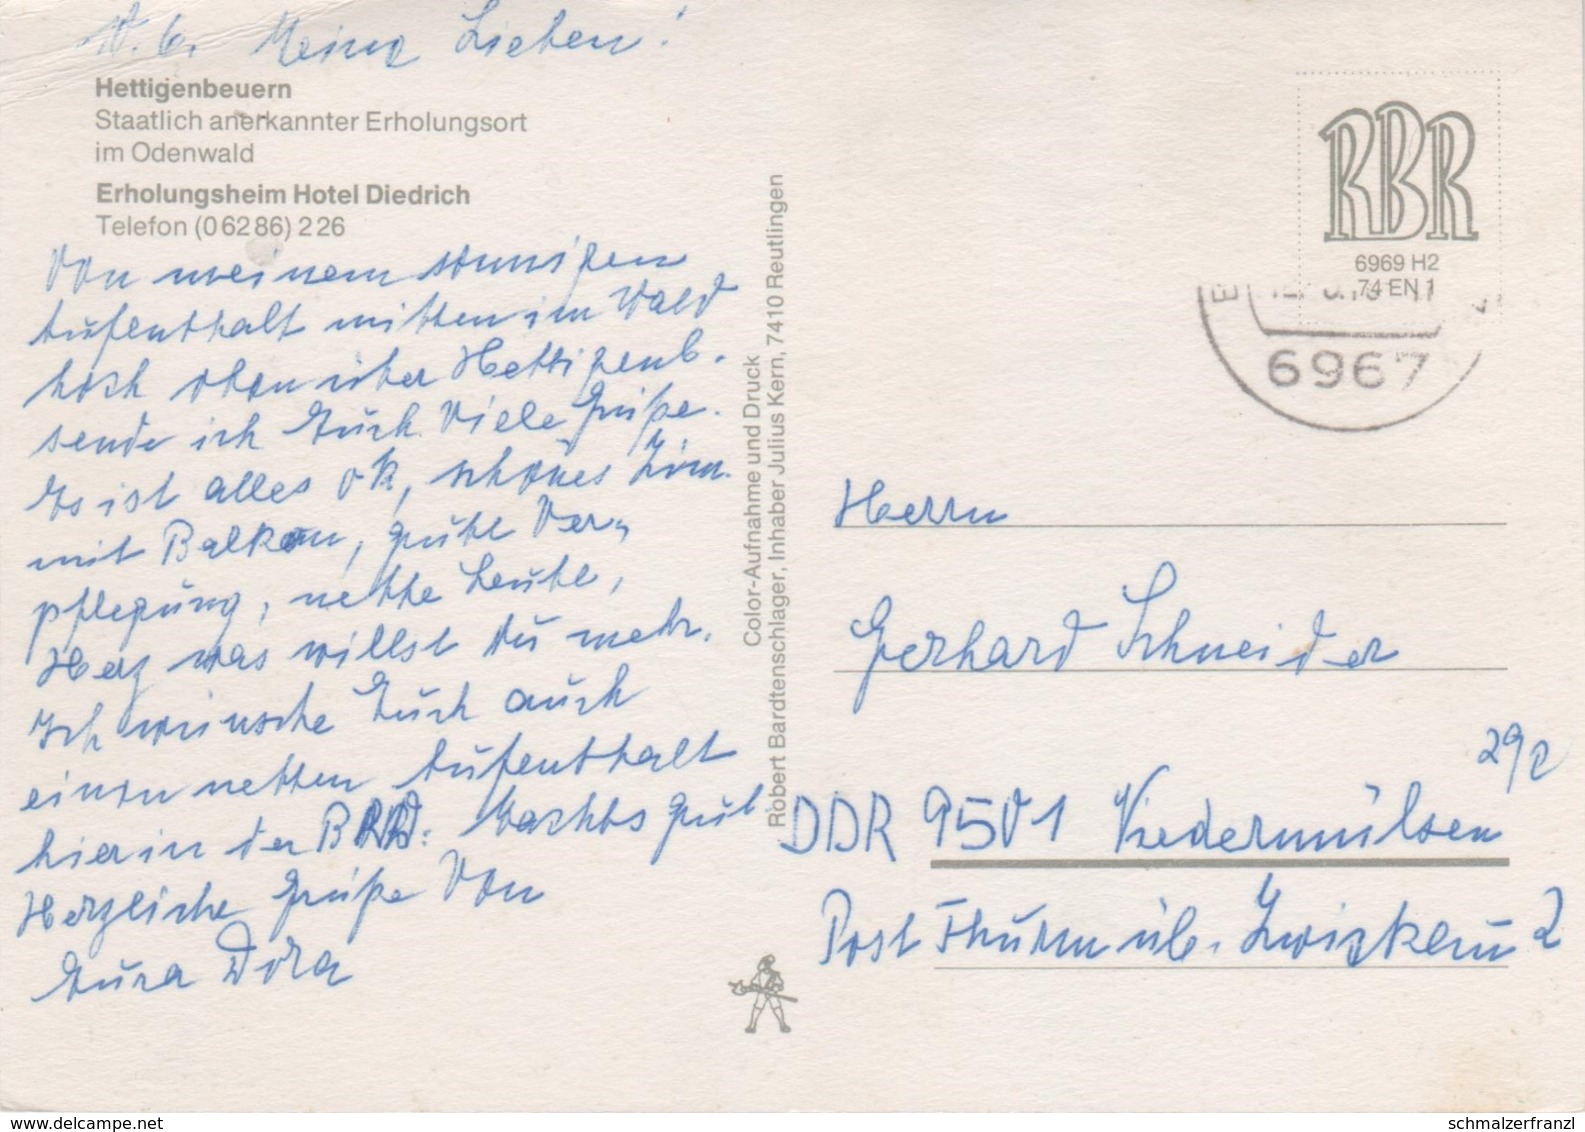 10. 6. Meine Lieben!
Hettigenbeuern
Staatlich anerkannter Erholungsort
im Odenwald
Erholungsheim Hotel Diedrich
Telefon (0 62 86) 2 26
Von meinem sonnigen
Aufenthalt mitten im Wald
hoch oben über Hettigenb.
sende ich Euch viele Grüße.
Es ist alles ok, schönes Zim.
mit Balkon, gute Ver-
pflegung, nette Leute,
Herz was willst Du mehr.
Ich wünsche Euch auch
einen netten Aufenthalt
hier in der BRD.
Herzliche Grüße von
Eura Dora
Color-Aufnahme und Druck
Robert Bardtenschlager, Inhaber Julius Kern, 7410 Reutlingen
RBR
6969 H2
74 EN 1
6967
Herrn
Gerhard Schneider
29
DDR 9501 Niedermülsen
Post Thurm üb. Zwickau 2
www.delcampe.net
schmalzerfranzl